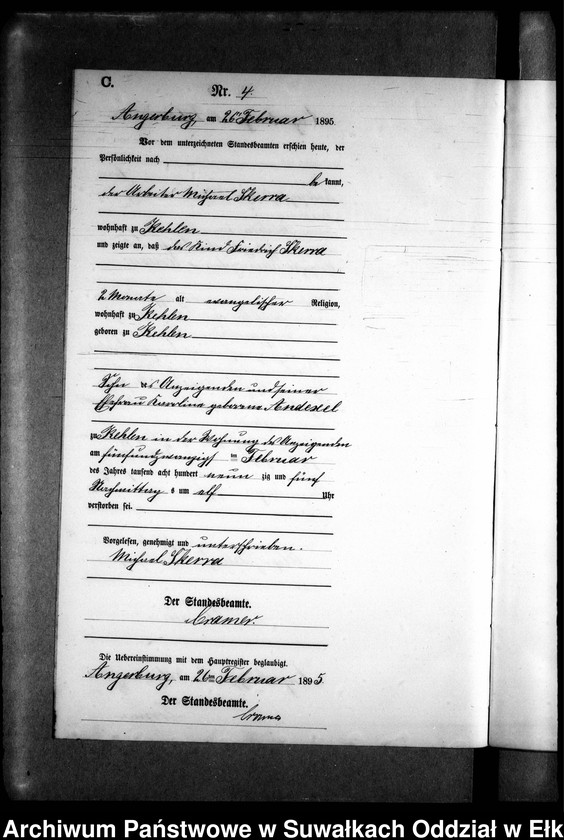 C.
Nr. 4.
Angerburg, am 26ten Februar 1895.
Vor dem unterzeichneten Standesbeamten erschien heute, der
Persönlichkeit nach
be kannt,
der Arbeiter Michael Skerra
wohnhaft zu Kehlen
und zeigte an, daß das Kind Friedrich Skerra
2 Monate alt evangelischer Religion,
wohnhaft zu Kehlen
geboren zu Kehlen
Sohn des Anzeigenden und seiner
Ehefrau Karoline geborene Andexel
zu Kehlen in der Wohnung des Anzeigenden
am fünfundzwanzigsten Februar
des Jahres tausend acht hundert neun zig und fünf
Nachmittags um elf Uhr
verstorben sei.
Vorgelesen, genehmigt und unterschrieben.
Michael Skerra
Der Standesbeamte.
Cramer.
Die Uebereinstimmung mit dem Hauptregister beglaubigt.
Angerburg, am 26ten Februar 1895.
Der Standesbeamte.
Cramer
Archiwum Państwowe w Suwałkach Oddział w Ełk